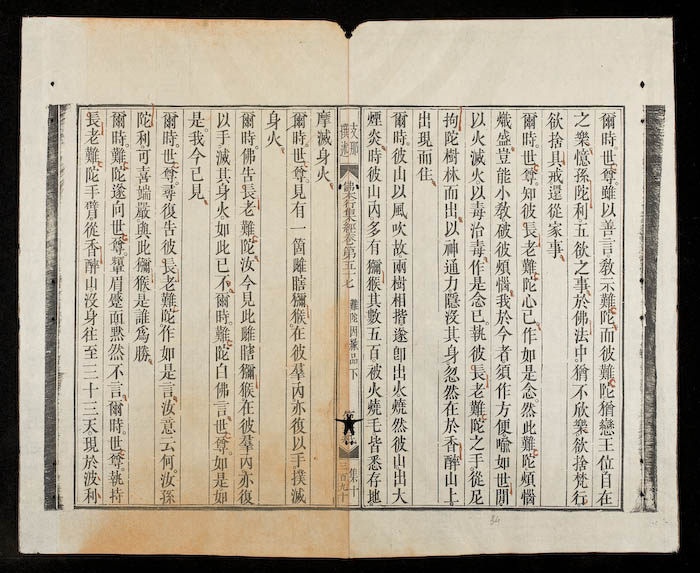 爾時世尊雖以善言教示難陀而彼難陀猶戀王位自在
之樂憶孫陀利五欲之事於佛法中猶不欣樂欲捨梵行
欲捨具戒還從家事
爾時世尊知彼長老難陀心已作如是念然此難陀煩惱
熾盛豈能小教破彼煩惱我於今者須作方便喻如世間
以火滅火以毒治毒作是念已執彼長老難陀之手從尼
拘陀樹林而出以神通力隱沒其身忽然在於香醉山上
出現而住
爾時彼山以風吹故兩樹相揩遂卽出火燒然彼山出大
煙炎時彼山內多有獼猴其數五百被火燒毛皆悉存地
支那撰述
佛本行集經卷第五十七
難陀因緣品下
集十
三百九十
摩滅身火
爾時世尊見有一箇雌瞎獼猴在彼羣內亦復以手撲滅
身火
爾時佛告長老難陀汝今見此雌瞎獼猴在彼羣內亦復
以手滅其身火如此已不爾時難陀白佛言世尊如是如
是我今已見
爾時世尊尋復告彼長老難陀作如是言汝意云何汝孫
陀利可喜端嚴與此獼猴是誰爲勝
爾時難陀遂向世尊顰眉蹙面默然不言爾時世尊執持
長老難陀手臂從香醉山沒身往至三十三天現於波利